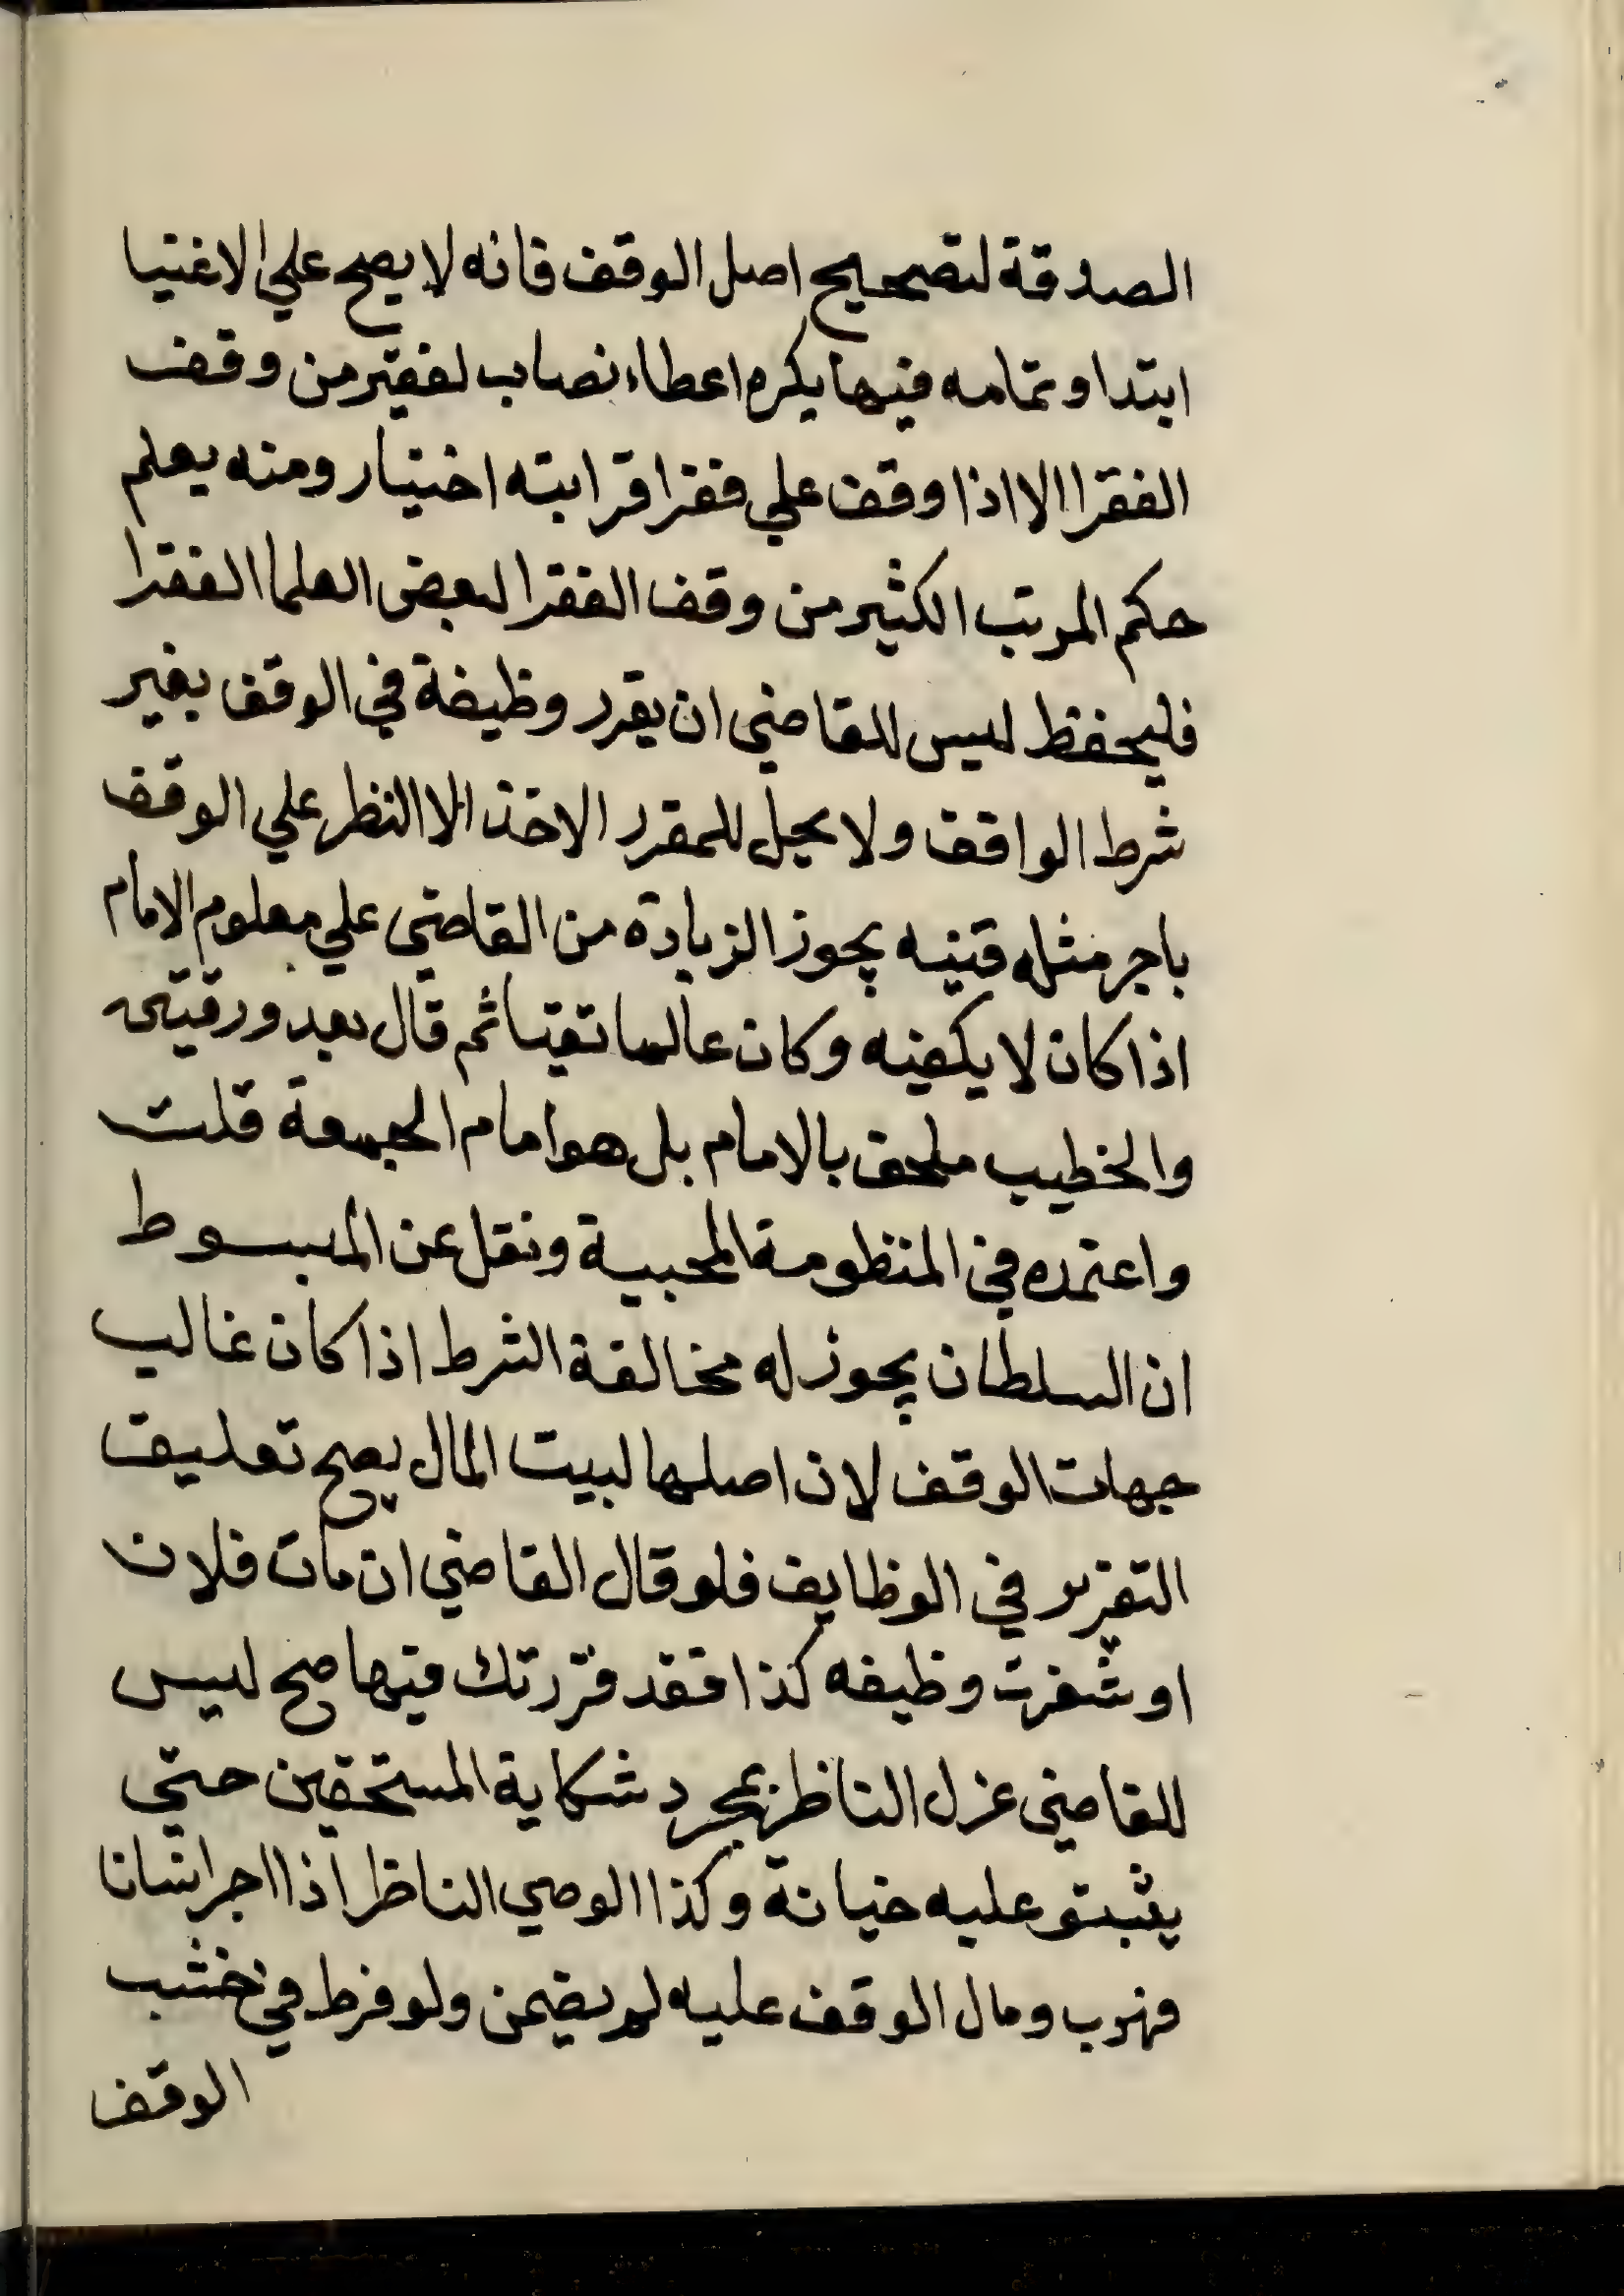 الصدقة لتصحيح اصل الوقف فانه لا يصح علي الاغنيا
ابتدا وتمامه فيها يكره اعطاء نصاب لفقير من وقف
الفقرا الا اذا وقف علي فقرا قرابته اختيار ومنه يعلم
حكم المرتب الكثير من وقف الفقرا لبعض العلما الفقرا
فليحفظ ليس للقاضي ان يقرر وظيفة في الوقف بغير
شرط الواقف ولا يحل للمقرر الاخذ الا النظر علي الوقف
باجر مثله قنيه يجوز الزيادة من القاضي علي معلوم الامام
اذا كان لا يكفيه وكان عالما تقيا ثم قال بعد ورقتين
والخطيب ملحق بالامام بل هو امام الجمعة قلت
واعتمده في المنظومة المحبية ونقل عن المبسوط
ان السلطان يجوز له مخالفة الشرط اذا كان غالب
جهات الوقف لان اصلها لبيت المال يصح تعليق
التقرير في الوظايف فلو قال القاضي ان مات فلان
او شغرت وظيفه كذا فقد قررتك فيها صح ليس
للقاضي عزل الناظر بمجرد شكاية المستحقين حتي
يثبتو عليه خيانة وكذا الوصي الناظر اذا اجر انسانا
فهرب ومال الوقف عليه لم يضمن ولو فرط في خشب
الوقف